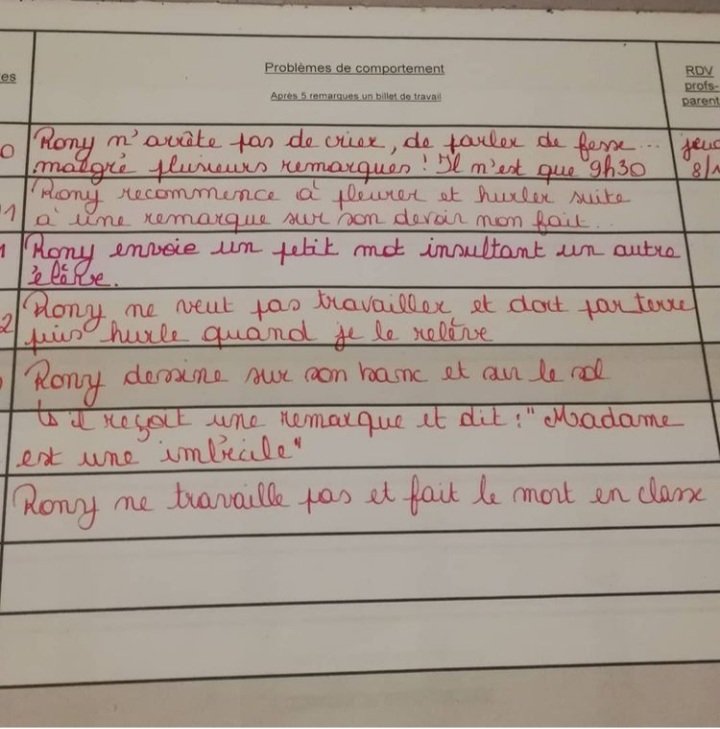 es
Problèmes de comportement
Après 5 remarques un billet de travail
RDV
profs-
parent
0
Rony n'arrête pas de crier, de parler de fesse...
malgré plusieurs remarques ! Il n'est que 9h30
jeud
8/1
1
Rony recommence à pleurer et hurler suite
à une remarque sur son devoir non fait...
1
Rony envoie un petit mot insultant un autre
élève.
2
Rony ne veut pas travailler et dort par terre
puis hurle quand je le relève
Rony dessine sur son banc et sur le sol
↳ il reçoit une remarque et dit : "Madame
est une imbécile"
Rony ne travaille pas et fait le mort en classe